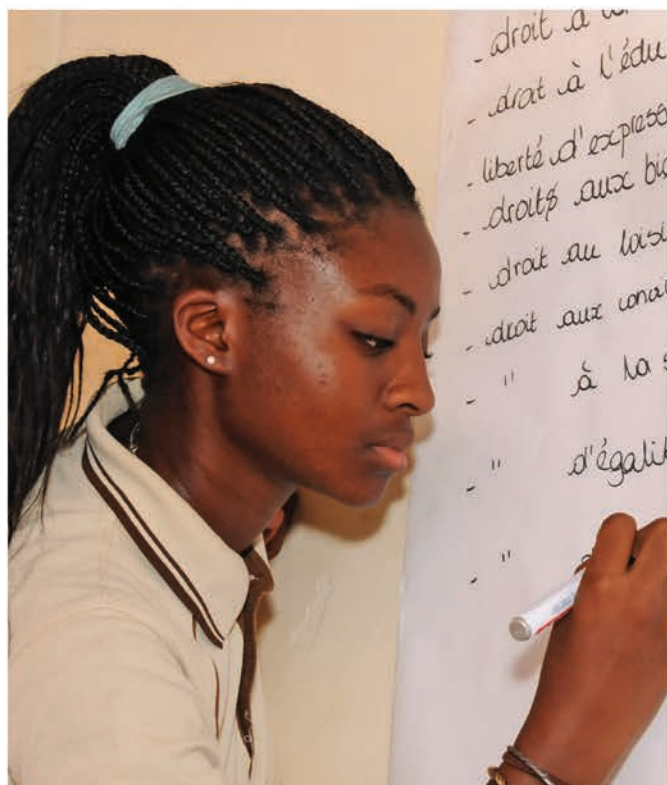 - droit à
- droit à l'édu
- liberté d'express
- droits aux bi
- droit au loisi
- droit aux
- " à la s
- " d'égalit
- "